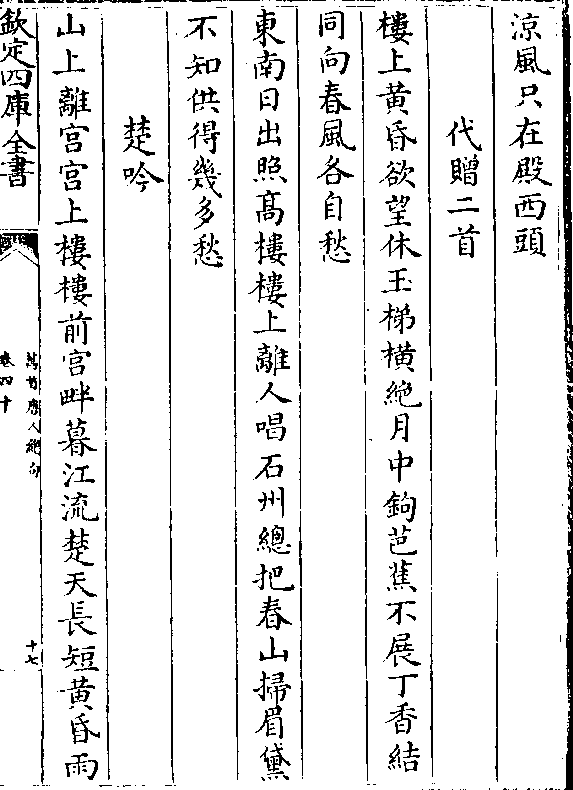 涼風只在殿西頭
代贈二首
樓上黃昏欲望休玉梯橫絶月中鉤芭蕉不展丁香結
同向春風各自愁
東南日出照髙樓樓上離人唱石州總把春山掃眉黛
不知供得幾多愁
楚吟
山上離宫宫上樓樓前宫畔暮江流楚天長短黃昏雨
欽定四庫全書
萬首唐人絶句
卷四十
十七